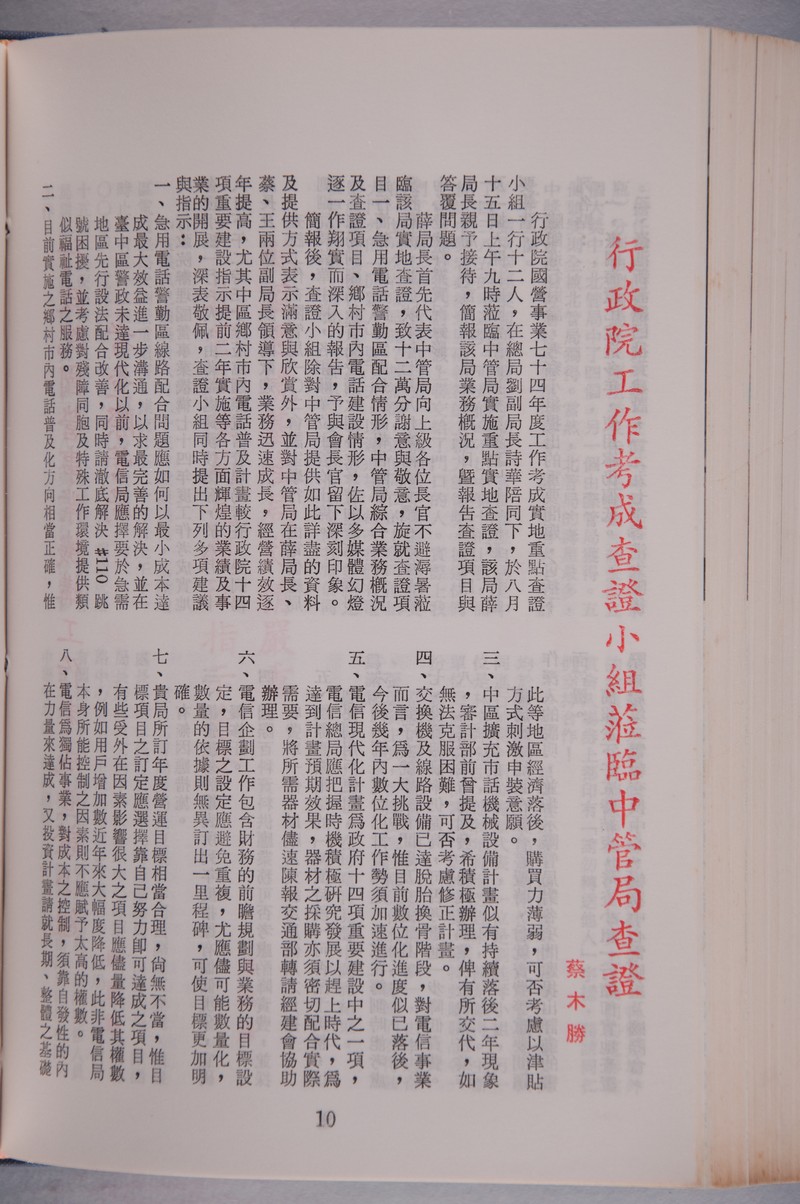 行政院工作考成查證小組蒞臨中管局查證
蔡木勝
行政院國營事業七十四年度工作考成實地重點查證
小組一行十二人，在總局劉副局長詩華陪同下，於八月
十五日上午九時蒞臨中管局實施重點實地查證，該局薛
局長親予接待，簡報該局業務概況，暨報告查證項目與
答覆問題。
薛局長首先代表中管局向上級各位長官不避溽暑蒞
臨該局實地查證，致十二萬分謝意與敬意，旋就查證項
目一、急用電話警勤區配合情形，中管局綜合業務概況
及查證項目、鄉村市內電話建設情形，佐以多媒體幻燈
逐一作翔實而深入的報告，予與會長官留下深刻印象。
簡報後，查證小組除對中管局提供如此詳盡的資料
及提供方式表示滿意與欣賞外，並對中管局在薛局長、
蔡、王兩位副局長領導下，業務迅速成長，經營績效逐
年提高，尤其中區鄉村市內電話普及計畫較行政院十四
項重要建設指示提前二年實施等各方面輝煌的業績及事
業的開展，深表敬佩，查證小組同時提出下列多項建議
與指示：
一、急用電話警勤區線路配合問題應如何以最小成本達
成最大效益進一步溝通，以求最完善的解決，並在
臺中區警政未達現代化以前，電信局應擇要於急需
地區先行設法配合改善，同時請澈底解決 #110 跳
號困擾，並考慮對殘障同胞及特殊工作環境提供類
似福祉電話之服務。
二、目前實施之鄉村市內電話普及化方向相當正確，惟
此等地區經濟落後，購買力薄弱，可否考慮以津貼
方式刺激申裝意願。
三、中區擴充市話機械設備計畫似有持續落後二年現象
，審計部前曾提及，希積極辦理，俾有所交代，如
無法克服困難，可否考慮修正計畫。
四、交換機及線路設備已達脫胎換骨階段，對電信事業
而言，爲一大挑戰，惟目前數位化進度似已落後，
今後幾年內數位化工作勢須加速進行。
五、電信現代化計畫爲政府十四項重要建設中之一項，
電信總局應把握時機積極研究發展以趕上時代，爲
達到計畫預期效果，器材之採購亦須密切配合實際
需要，將所需器材儘速陳報交通部轉請經建會協助
辦理。
六、電信企劃工作包含財務的前瞻規劃與業務的目標設
定，目標之設定應避免重複，尤應儘可能數量化，
數量的依據則無異訂出一里程碑，可使目標更加明
確。
七、貴局所訂年度營運目標相當合理，尙無不當，惟目
標項目之訂定應選擇靠自己努力卽可達成之項目，
有些受外在因素影響很大之項目應儘量降低其權數
，例如用戶增加數近年來大幅度降低，此非電信局
本身所能控制之因素則不應賦予太高的權數。
八、電信爲獨佔事業，對成本之控制，須靠自發性的內
在力量來達成，又投資計畫請就長期、整體之基礎
10